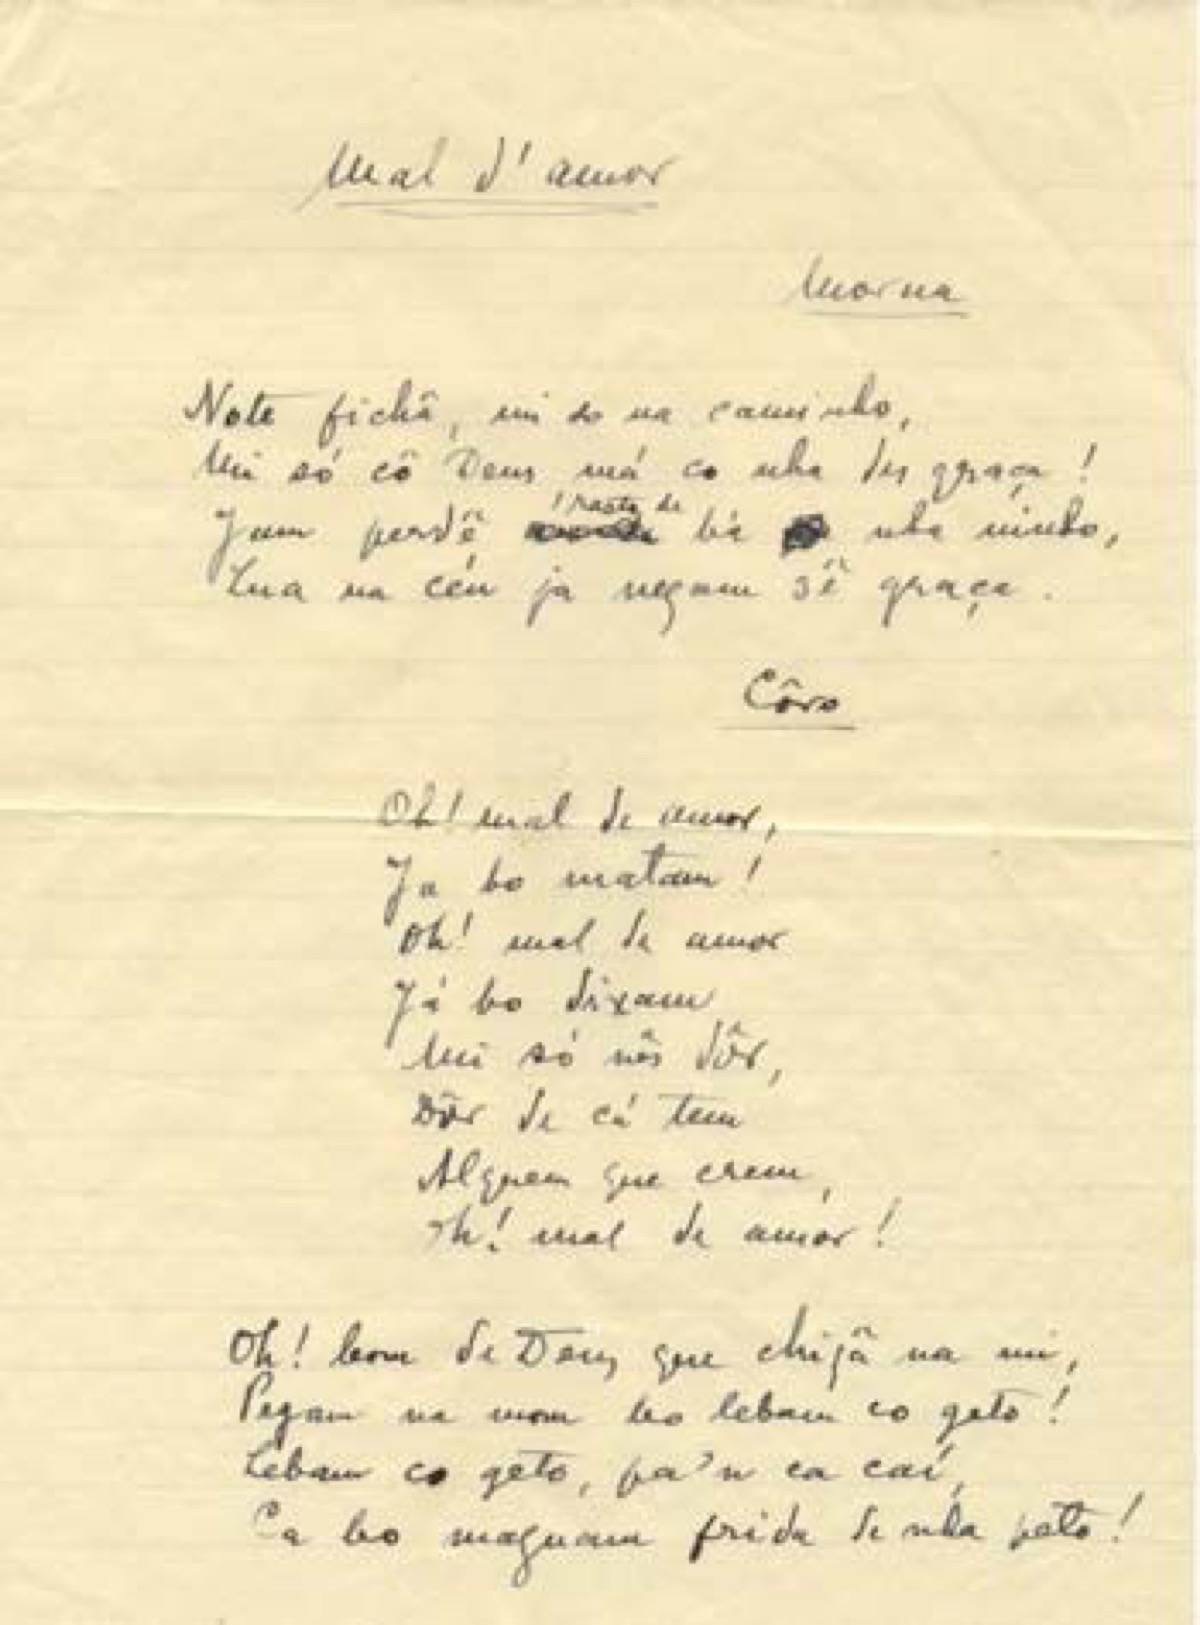 Mal d'amor
Morna
Note fichâ, mi so na caminho,
Mi só cô Deus má co nha desgraça!
Jam perdê rasto de bá nha ninho,
Lua na céu ja negam sê graça.
Côro
Oh! mal de amor,
Ja bo matam!
Oh! mal de amor
Já bo dixam
Mi só nês dôr,
Dôr de cá tem
Alguem que crem,
Oh! mal de amor!
Oh! bom de Deus que chijâ na mi,
Pegam na mom bo lebam co geto!
Lebam co geto, pa'n ca caí,
Ca bo maguam frida de nha peto!